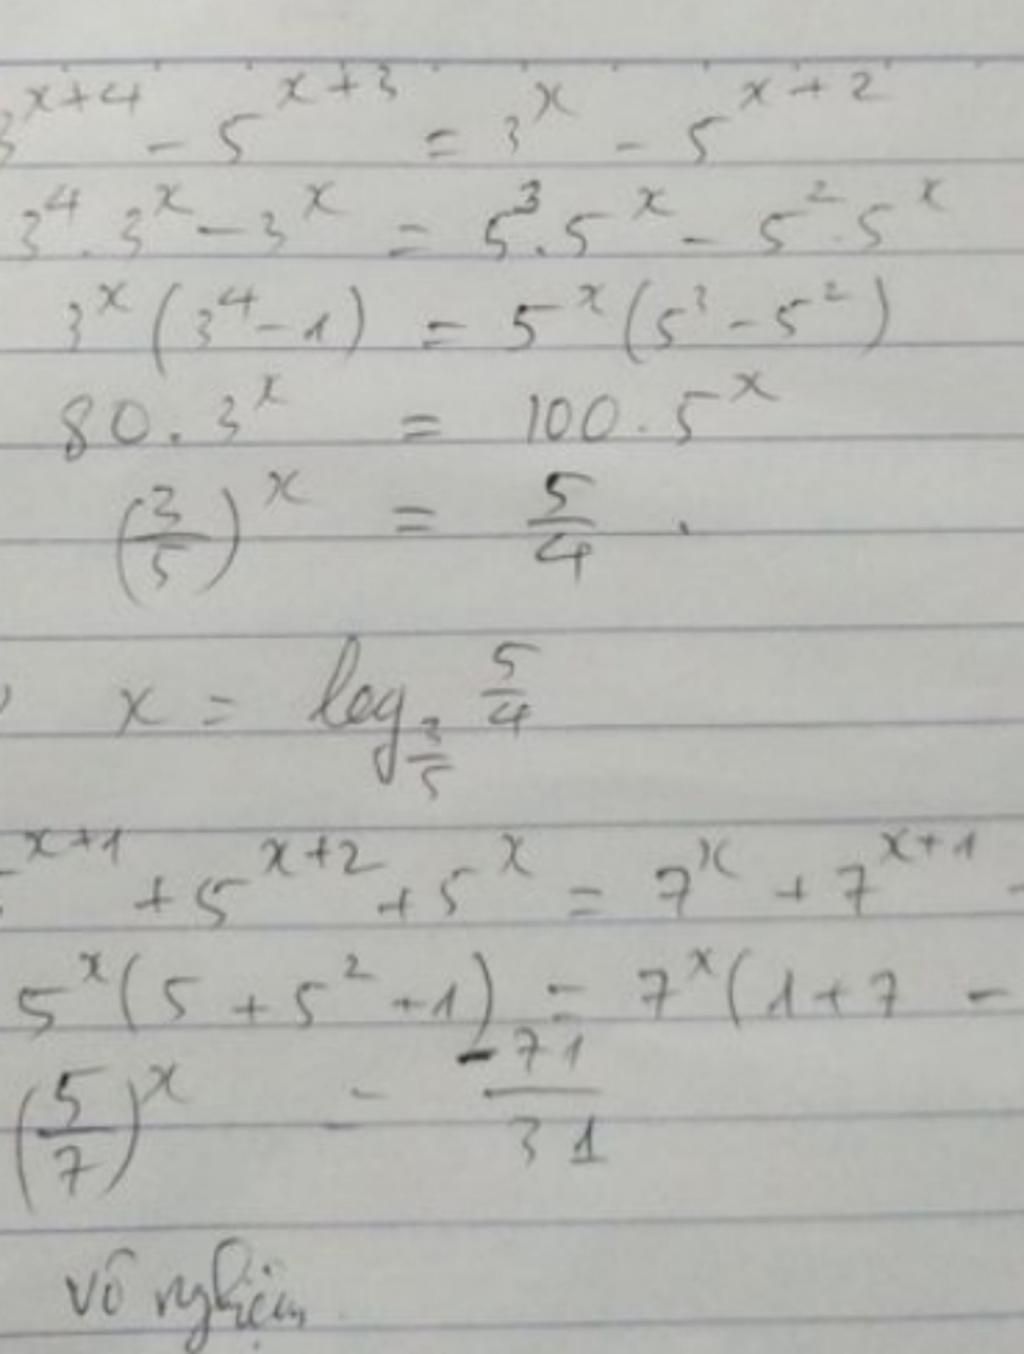 3^{x+4} - 5^{x+3} = 3^x - 5^{x+2}
3^4 . 3^x - 3^x = 5^3 . 5^x - 5^2 . 5^x
3^x (3^4 - 1) = 5^x (5^3 - 5^2)
80 . 3^x = 100 . 5^x
(3/5)^x = 5/4 .
x = log_{3/5} 5/4
^{x+1} + 5^{x+2} + 5^x = 7^x + 7^{x+1} -
5^x (5 + 5^2 + 1) = 7^x (1 + 7 -
(5/7)^x = -71/31
vô nghiệm